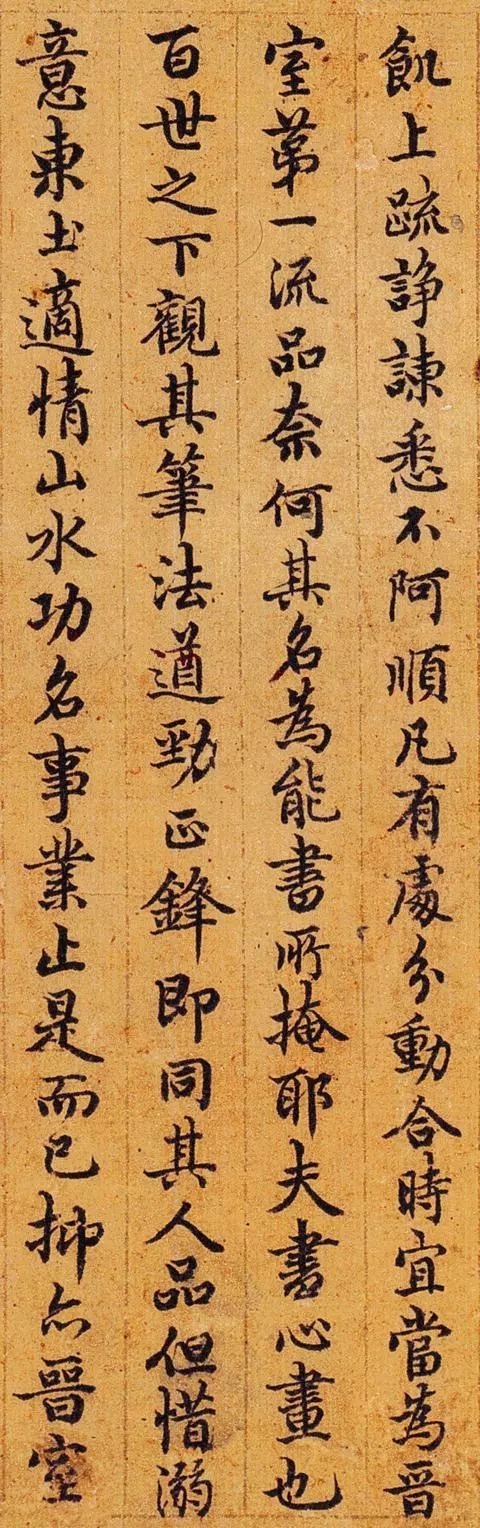 飢上疏諍諫悉不阿順凡有處分動合時宜當為晉
室第一流品奈何其名為能書所掩耶夫書心畫也
百世之下觀其筆法遒勁正鋒即同其人品但惜溺
意東土適情山水功名事業止是而已抑亦晉室